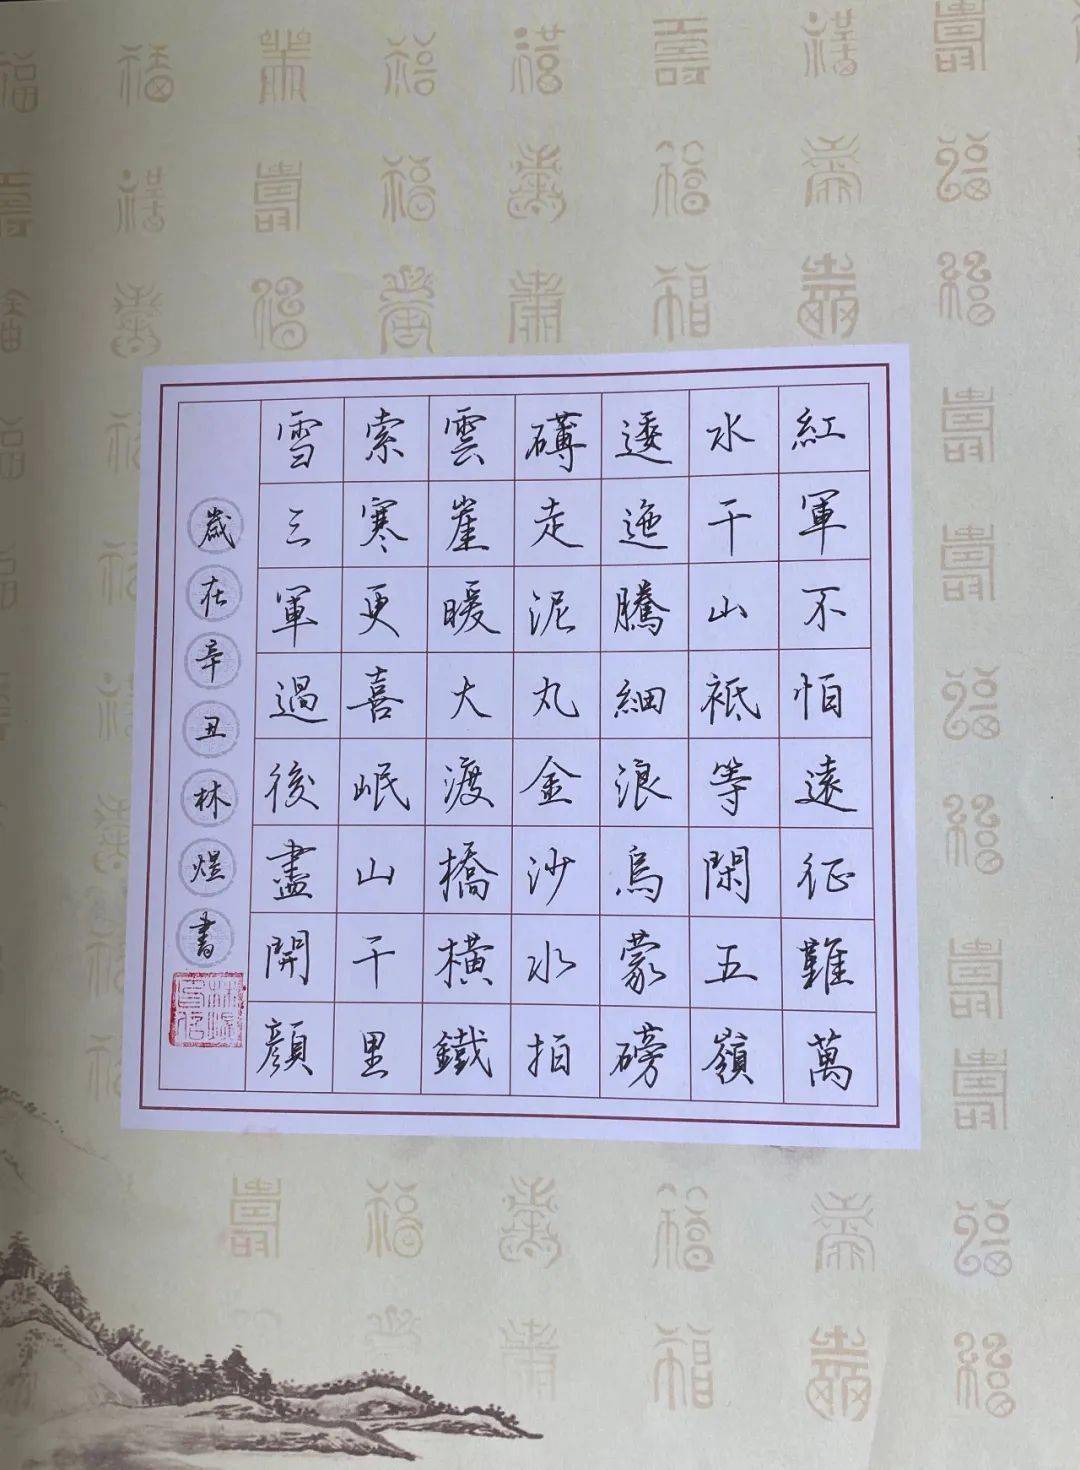 紅軍不怕遠征難萬
水千山祇等閑五嶺
逶迤騰細浪烏蒙磅
礴走泥丸金沙水拍
雲崖暖大渡橋橫鐵
索寒更喜岷山千里
雪三軍過後盡開顏
歲在辛丑林煜書